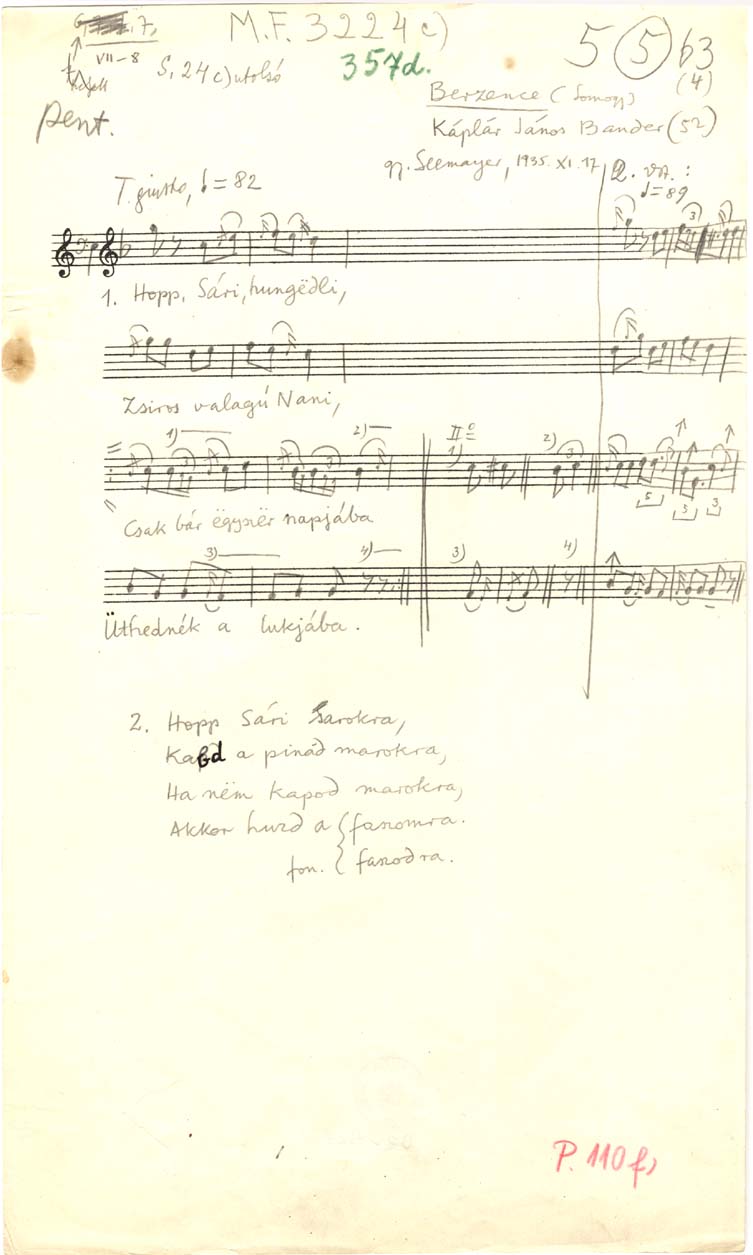 7,
M.F. 3224 c)
5 (5) b3
VII-8
S, 24 c) utolsó
357d.
(4)
Berzence (Somogy)
Pent.
Káplár János Bander (52)
gy. Seemayer, 1935. XI. 17
2. vsz. :
T. giusto, ♩ = 82
♩ = 89
3
1. Hopp, Sári, hungëdli,
Zsiros valagú Nani,
1) 2) II° 1) 2)
3 3 3 3 5 5 3
Csak bár ëgyszër napjába
3) 4) 3) 4)
Üthednék a lukjába.
2. Hopp Sári Sarokra,
Kabd a pinád marokra,
Ha nëm kapod marokra,
Akkor huzd a { faszomra.
fon. { faszodra.
P. 110 f)